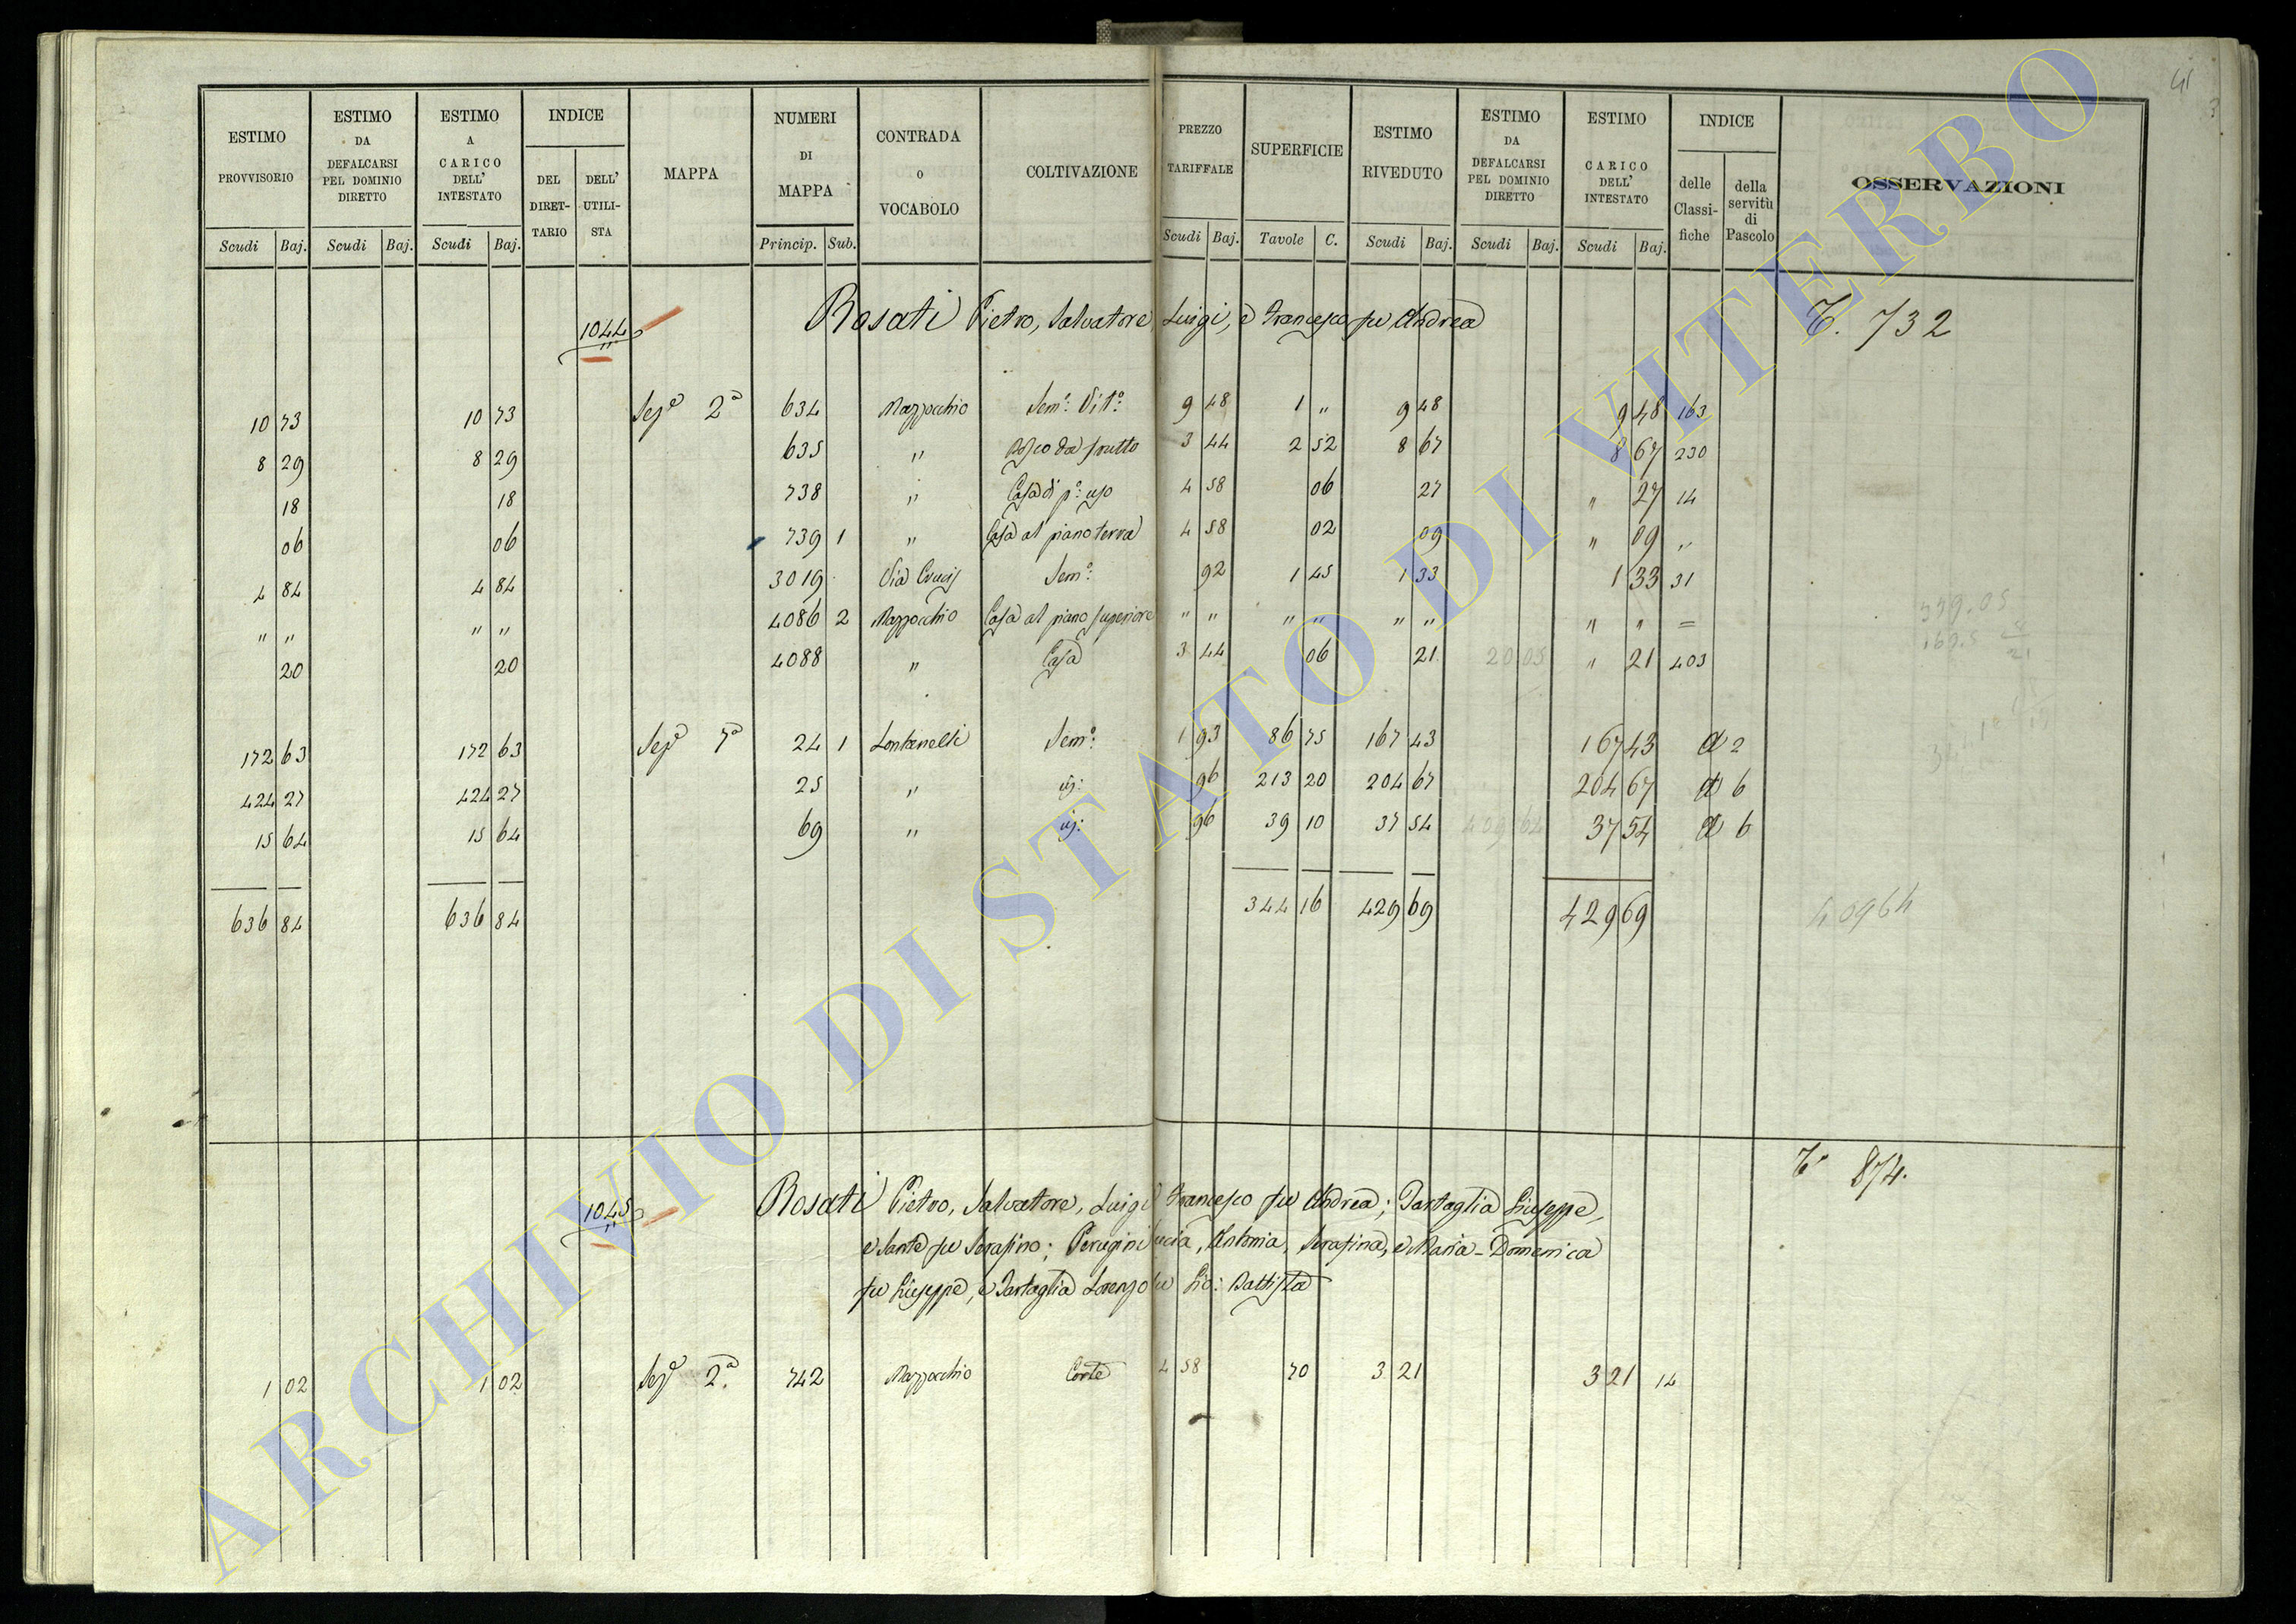 41
3
ESTIMO PROVVISORIO Scudi Baj. | ESTIMO DA DEFALCARSI PEL DOMINIO DIRETTO Scudi Baj. | ESTIMO A CARICO DELL' INTESTATO Scudi Baj. | INDICE DEL DIRET-TARIO DELL' UTILI-STA | MAPPA | NUMERI DI MAPPA Princip. Sub. | CONTRADA O VOCABOLO | COLTIVAZIONE | PREZZO TARIFFALE Scudi Baj. | SUPERFICIE Tavole C. | ESTIMO RIVEDUTO Scudi Baj. | ESTIMO DA DEFALCARSI PEL DOMINIO DIRETTO Scudi Baj. | ESTIMO CARICO DELL' INTESTATO Scudi Baj. | INDICE delle Classi-fiche della servitù di Pascolo | OSSERVAZIONI
1044 Rosati Pietro, Salvatore Luigi, e Francesco fu Andrea T. 732
10 73 10 73 Sezᵉ 2ᵃ 634 Mazzocchio Semᵒ: Vitᵒ: 9 48 1 " 9 48 9 48 163
8 29 8 29 635 " Bosco da frutto 3 44 2 52 8 67 8 67 230
18 18 738 " Casa di pᵒ: uso 4 58 06 27 " 27 14
06 06 739 1 " Casa al piano terra 4 58 02 09 " 09 "
4 84 4 84 3019 Via Crucis Semᵒ: 92 1 45 1 33 1 33 31
" " " " 4086 2 Mazzocchio Casa al piano superiore " " " " " " " " =
20 20 4088 " Casa 3 44 06 21 20 05 " 21 403
172 63 172 63 Sezᵉ 7ᵃ 24 1 Lontanelli Semᵒ: 1 93 86 75 167 43 167 43 A 2
424 27 424 27 25 " 96 213 20 204 67 204 67 A 6
15 64 15 64 69 " 96 39 10 37 54 409 64 37 54 A 6
636 84 636 84 344 16 429 69 429 69 40964
1045 Rosati Pietro, Salvatore, Luigi Francesco fu Andrea; Tartaglia Giuseppe, Tᵒ 874.
e Sante fu Serafino; Perugini Lucia, Antonia, Serafina, e Maria-Domenica
fu Giuseppe, e Tartaglia Lorenzo fu Gio: Battista
1 02 1 02 Sezᵉ 2ᵃ. 742 Mazzocchio Corte 4 58 70 3 21 3 21 14
ARCHIVIO DI STATO DI VITERBO